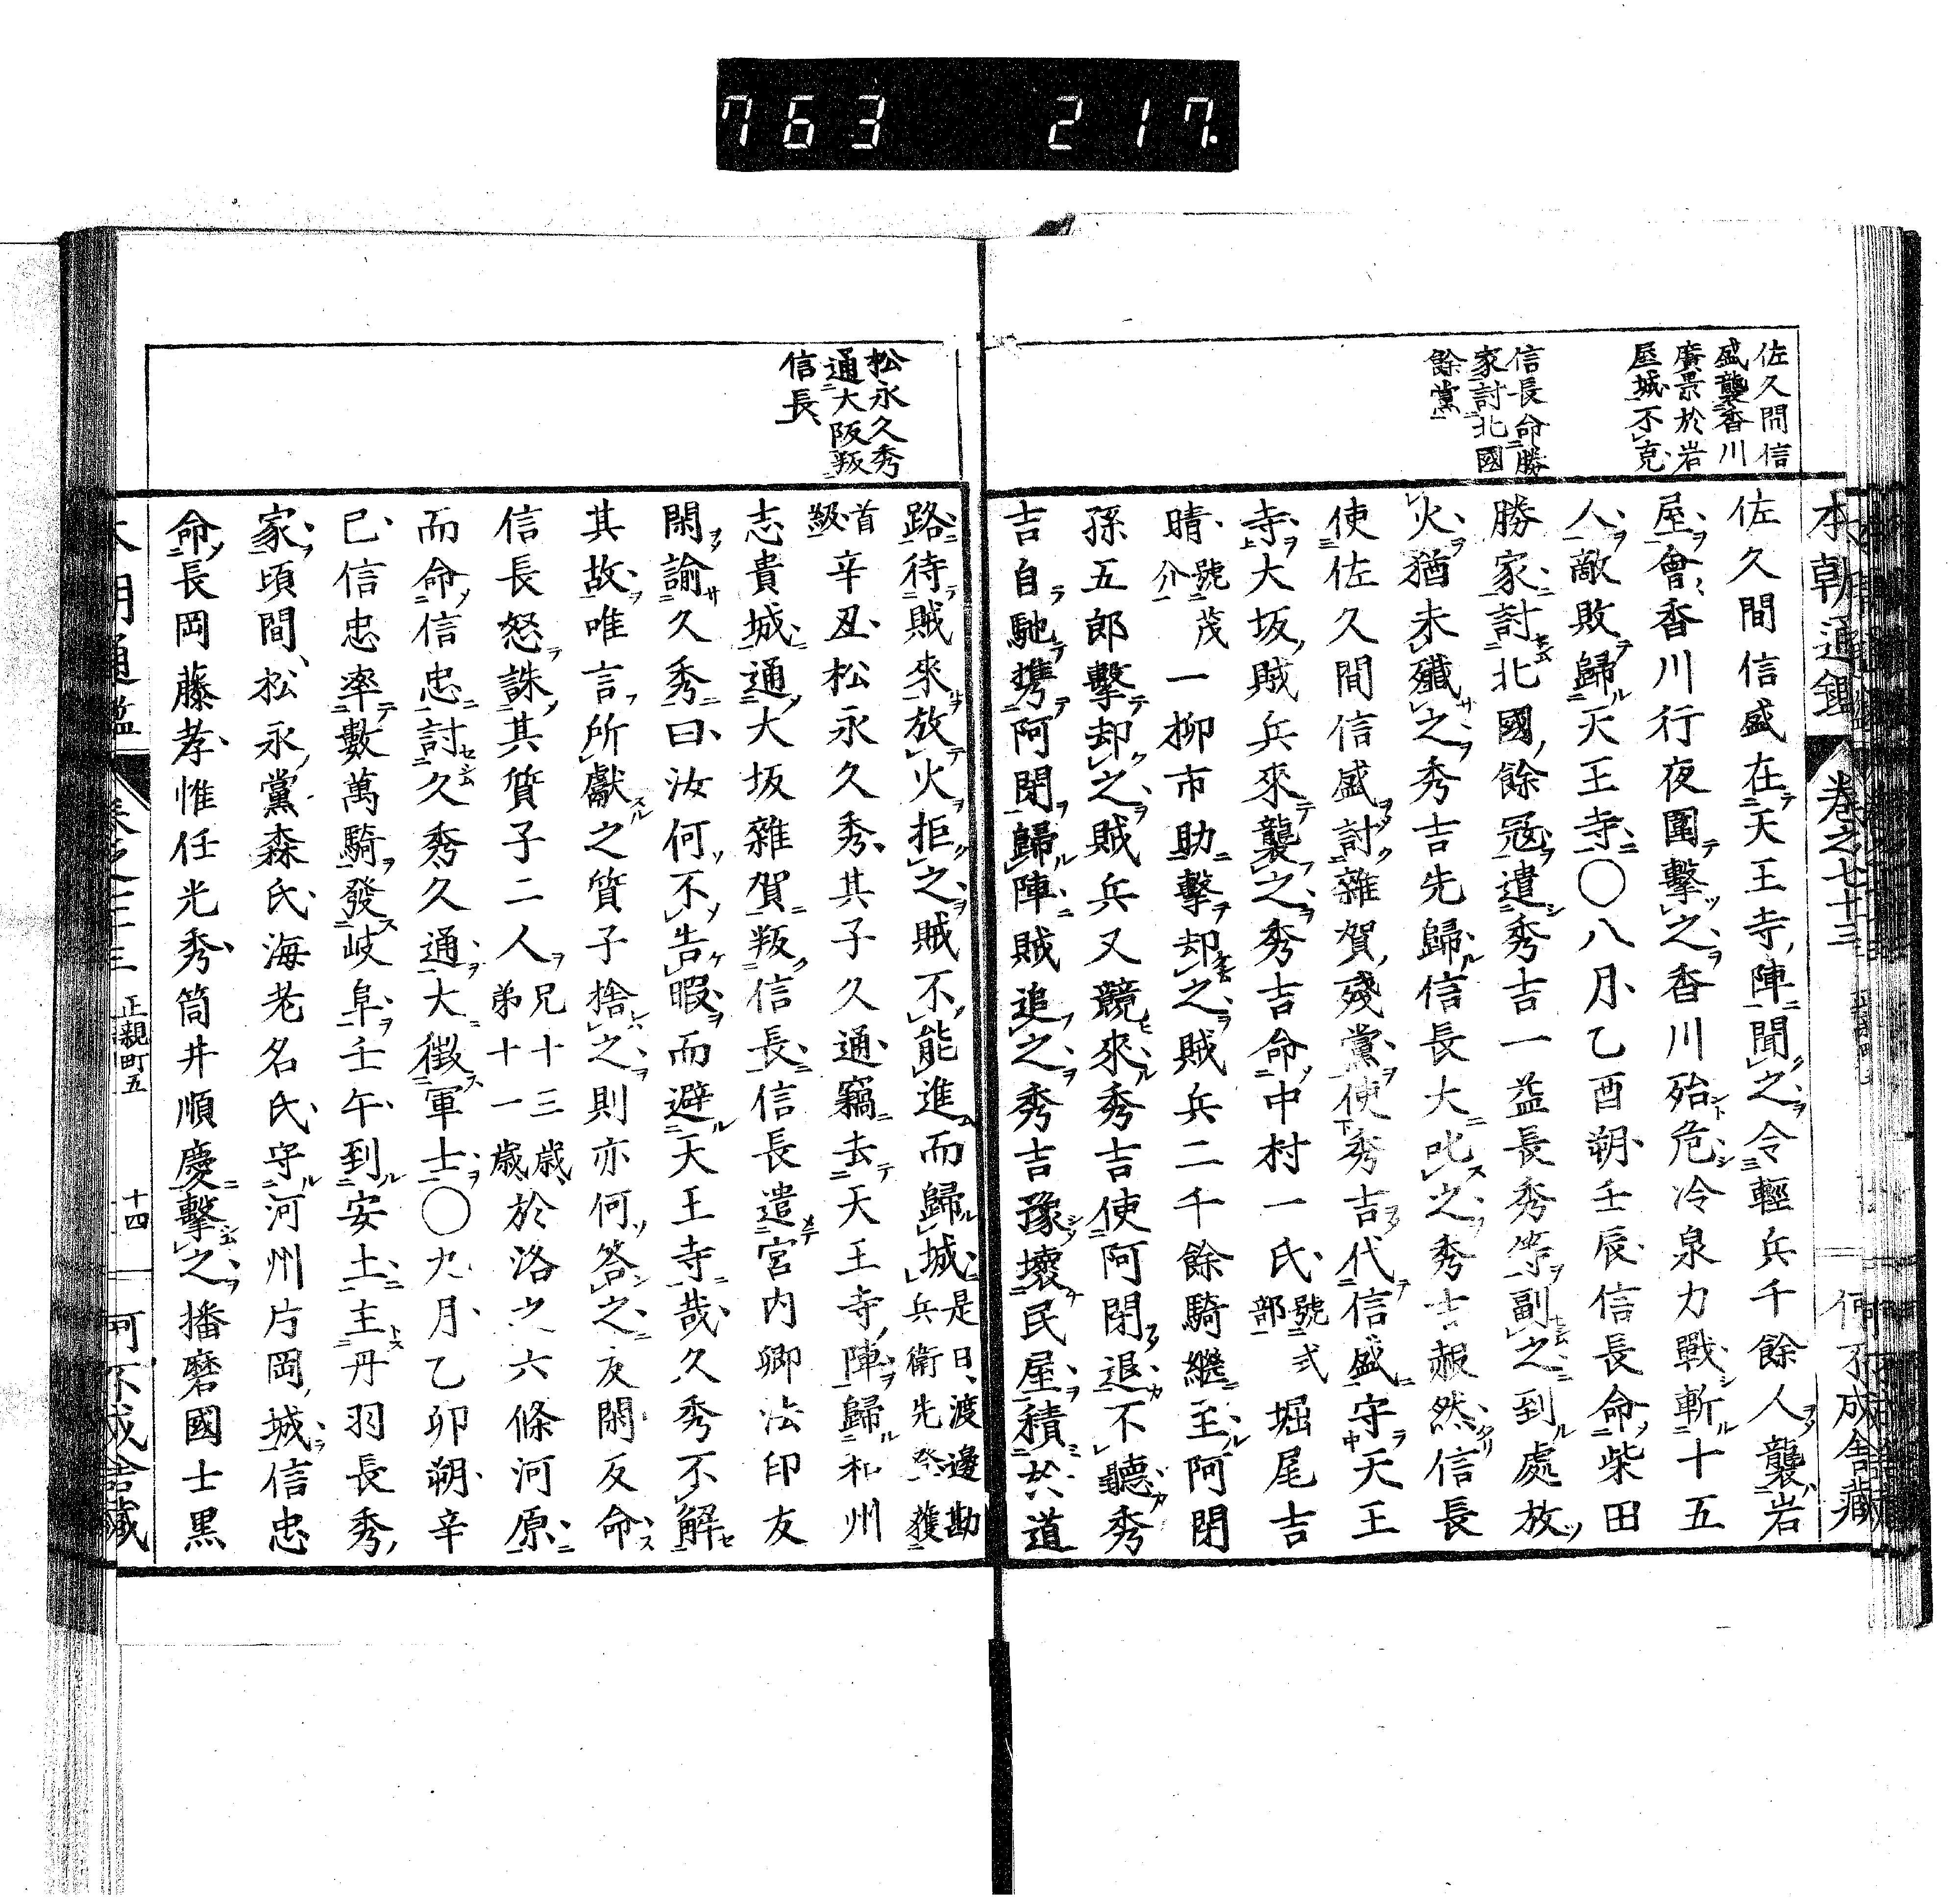 763 217.
佐久間信
盛襲香川
廣景於岩
屋城不克
信長命勝
家討北國
餘黨
本朝通鑑 卷之七十三 何不成舎藏
佐久間信盛在天王寺陣聞之令輕兵千餘人襲岩
屋會香川行夜圍擊之香川殆危冷泉力戰斬十五
人敵敗歸天王寺○八月乙酉朔壬辰信長命柴田
勝家討北國餘冦遣秀吉一益長秀等副之到處放
火猶未殱之秀吉先歸信長大叱之秀吉赧然信長
使佐久間信盛討雜賀殘黨使秀吉代信盛守天王
寺大坂賊兵來襲之秀吉命中村一氏號式部堀尾吉
晴號茂介一柳市助擊却之賊兵二千餘騎繼至阿閉
孫五郎擊却之賊兵又競來秀吉使阿閉退不聽秀
吉自馳携阿閉歸陣賊追之秀吉豫壞民屋積於道
松永久秀
通大阪叛
信長
路待賊來放火拒之賊不能進而歸城是日渡邊勘兵衛先登獲
首級辛丑松永久秀其子久通竊去天王寺陣歸和州
志貴城通大坂雜賀叛信長信長遣宮内卿法印友
閑諭久秀曰汝何不告暇而避天王寺哉久秀不解
其故唯言所獻之質子捨之則亦何答之友閑反命
信長怒誅其質子二人兄十三歳弟十一歳於洛之六條河原
而命信忠討久秀久通大徴軍士○九月乙卯朔辛
巳信忠率數萬騎發岐阜壬午到安土主丹羽長秀
家頃間松永黨森氏海老名氏守河州片岡城信忠
命長岡藤孝惟任光秀筒井順慶擊之播磨國士黒
本朝通鑑 卷之七十三 正親町五 十四 何不成舎藏